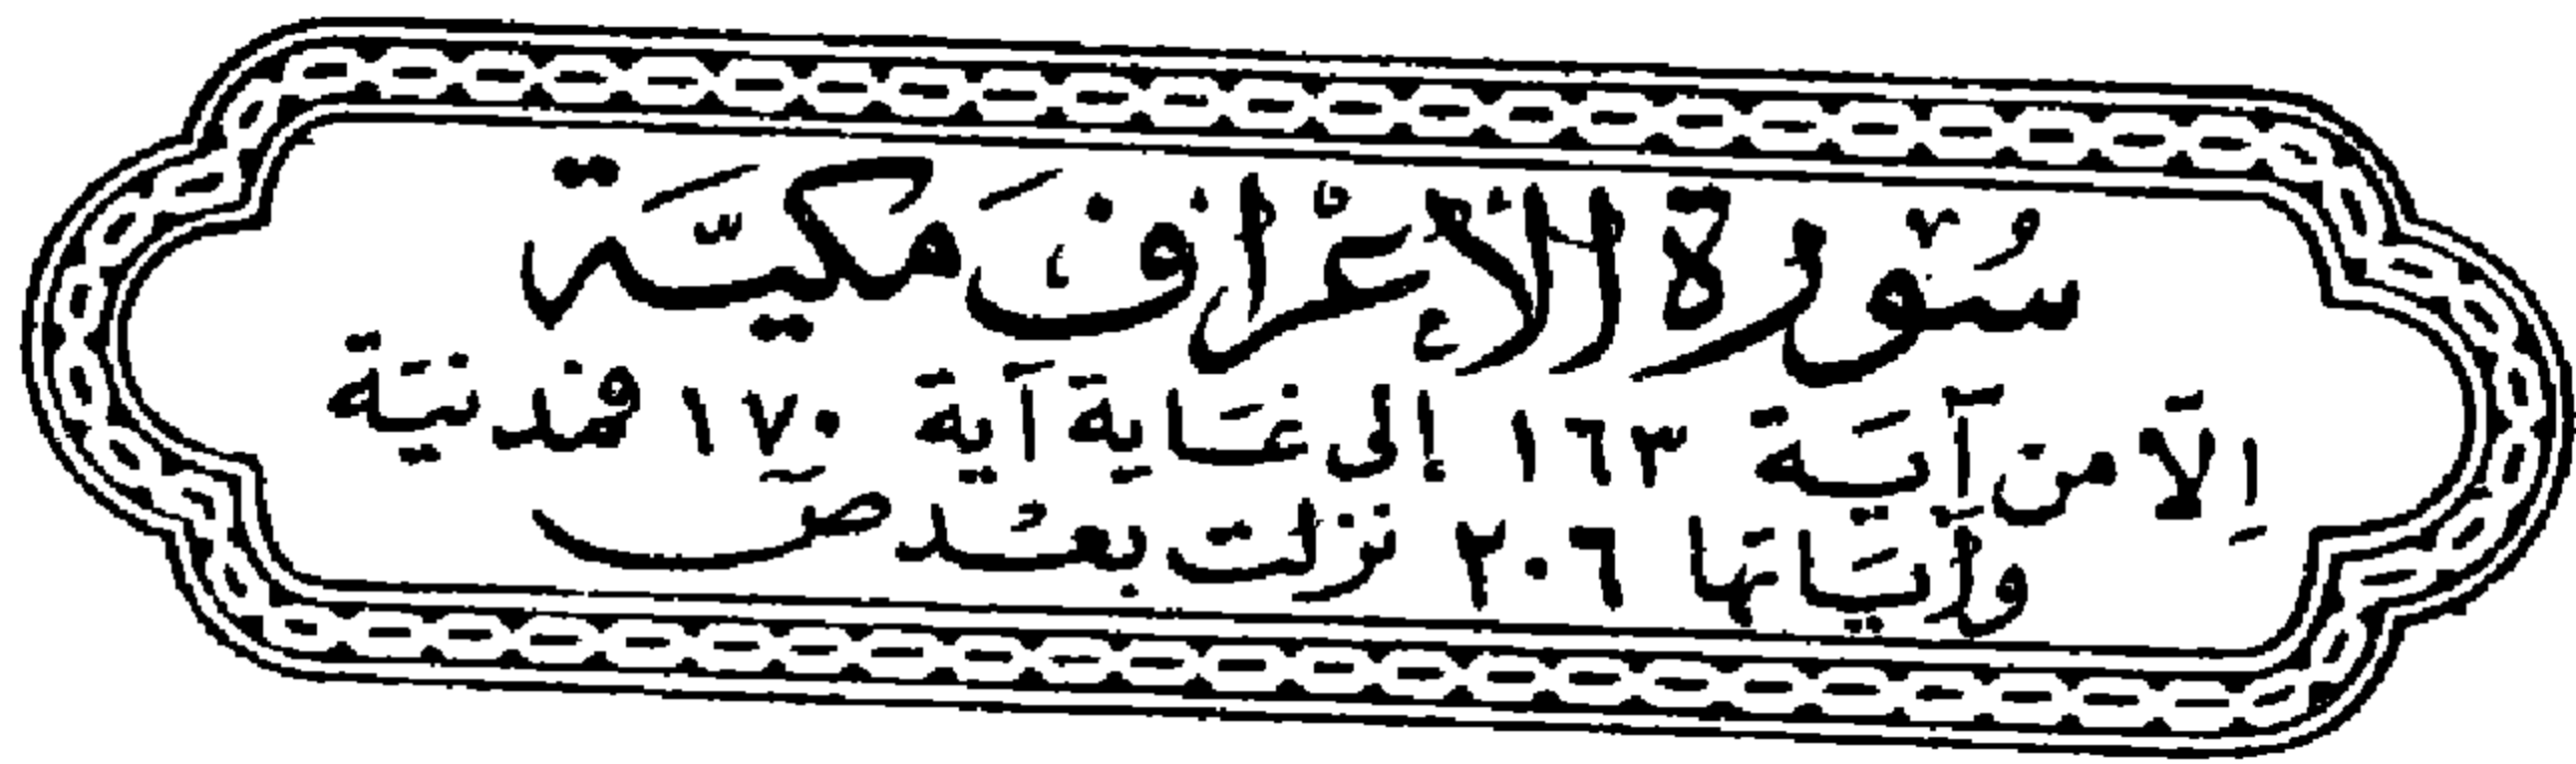 سُورَة الأعْرَافَ مَكيَّة
إلَّا من آيَة ١٦٣ إلى غَايَة آية ١٧٠ فمدنيَة
وآيَاتها ٢٠٦ نزلت بعْد صٓ